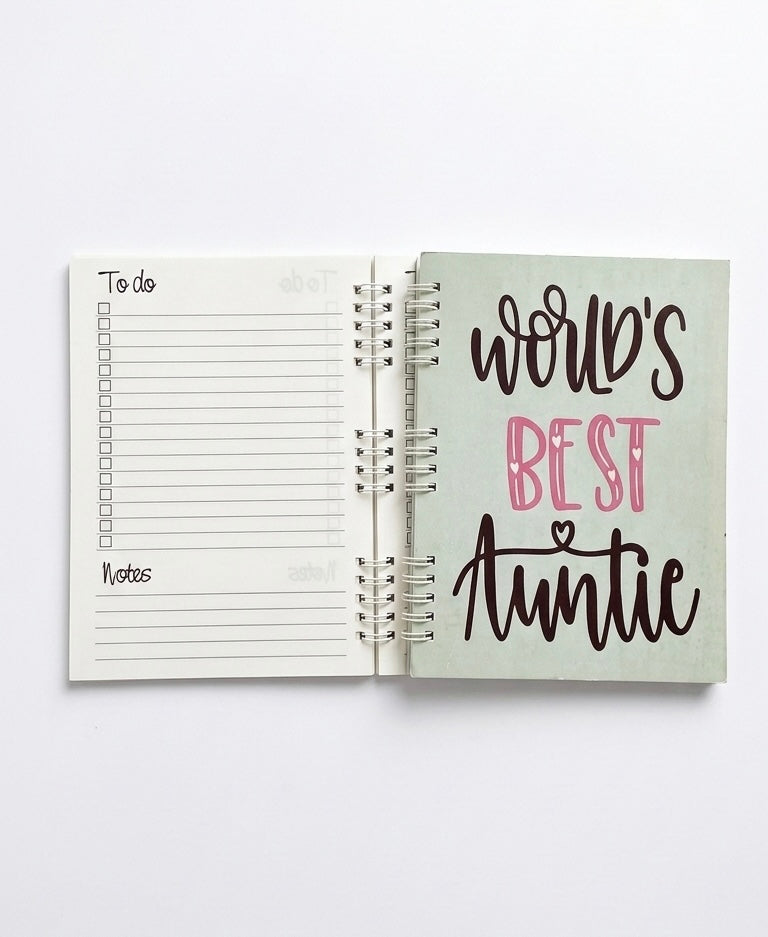 To do
Notes
WORLD'S
BEST
Auntie